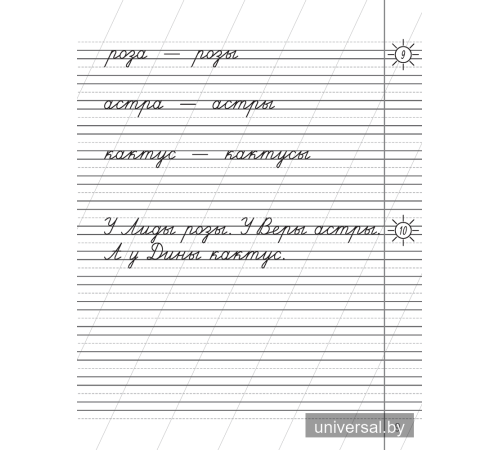 роза — розы
9
астра — астры
кактус — кактусы
У Лиды розы. У Веры астры.
10
А у Дины кактус.
universal.by